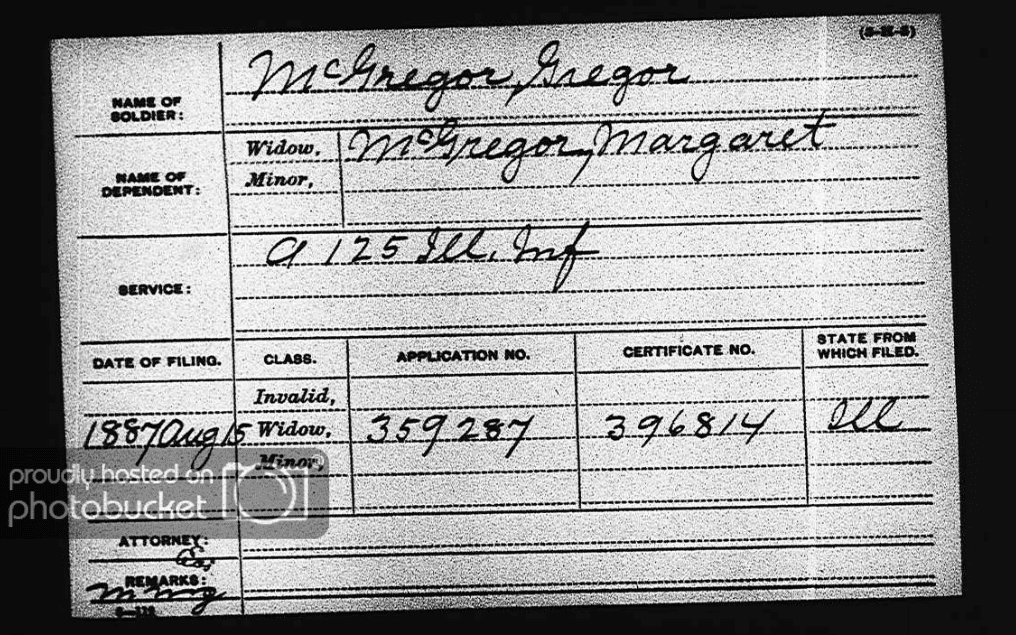 (3-22-5)
McGregor, Gregor
NAME OF
SOLDIER:
Widow, McGregor, Margaret
NAME OF
DEPENDENT:
Minor,
A 125 Ill. Inf
SERVICE:
DATE OF FILING. CLASS. APPLICATION NO. CERTIFICATE NO. STATE FROM
WHICH FILED.
Invalid,
1887 Aug 15 Widow, 359287 396814 Ill
Minor,
proudly hosted on
photobucket
ATTORNEY:
REMARKS: